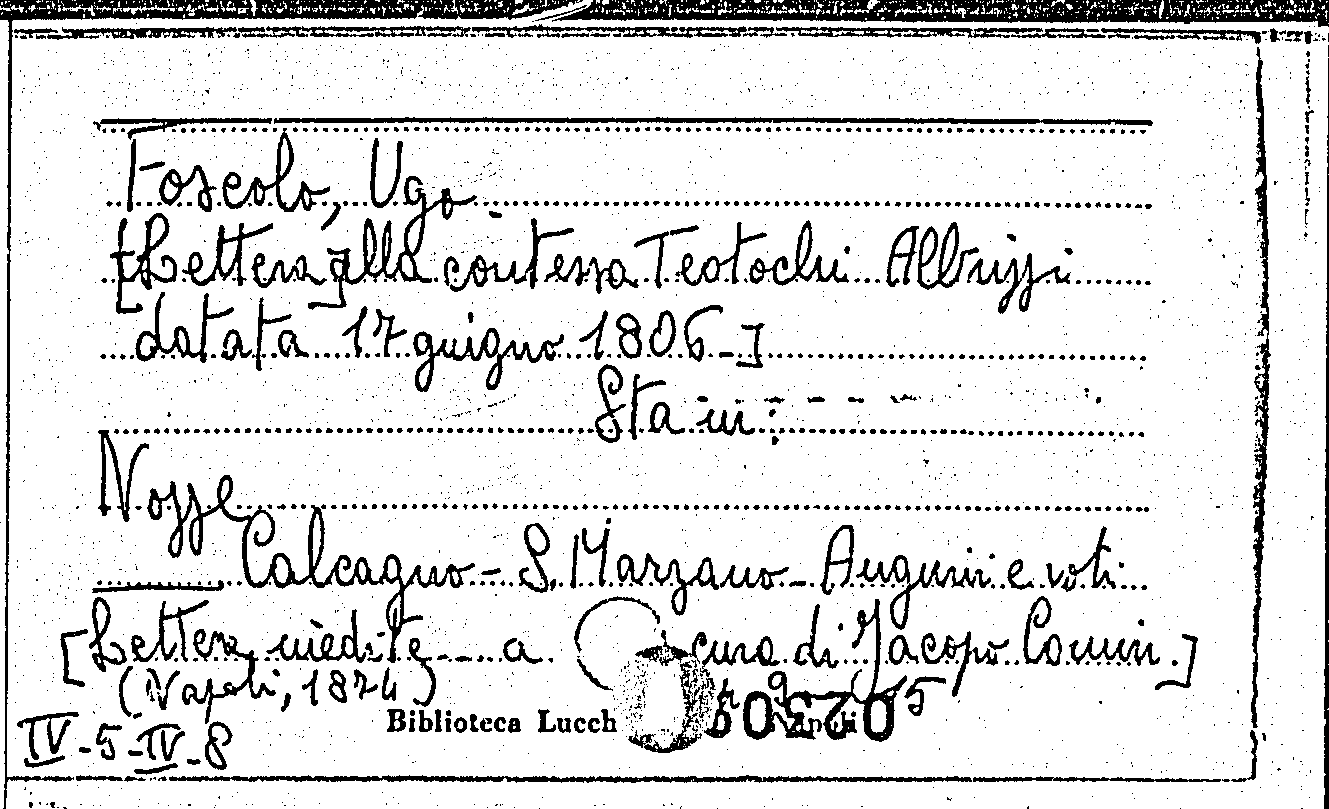 Foscolo, Ugo.
[Lettera] alla contessa Teotochi Albrizzi
datata 17 giugno 1806-]
Sta in:
Nozze
Calcagno - S. Marzano - Augurii e voti
[Lettere inedite a cura di Jacopo Comin.]
(Napoli, 1874)
Biblioteca Lucch Napoli
IV-5-IV-8